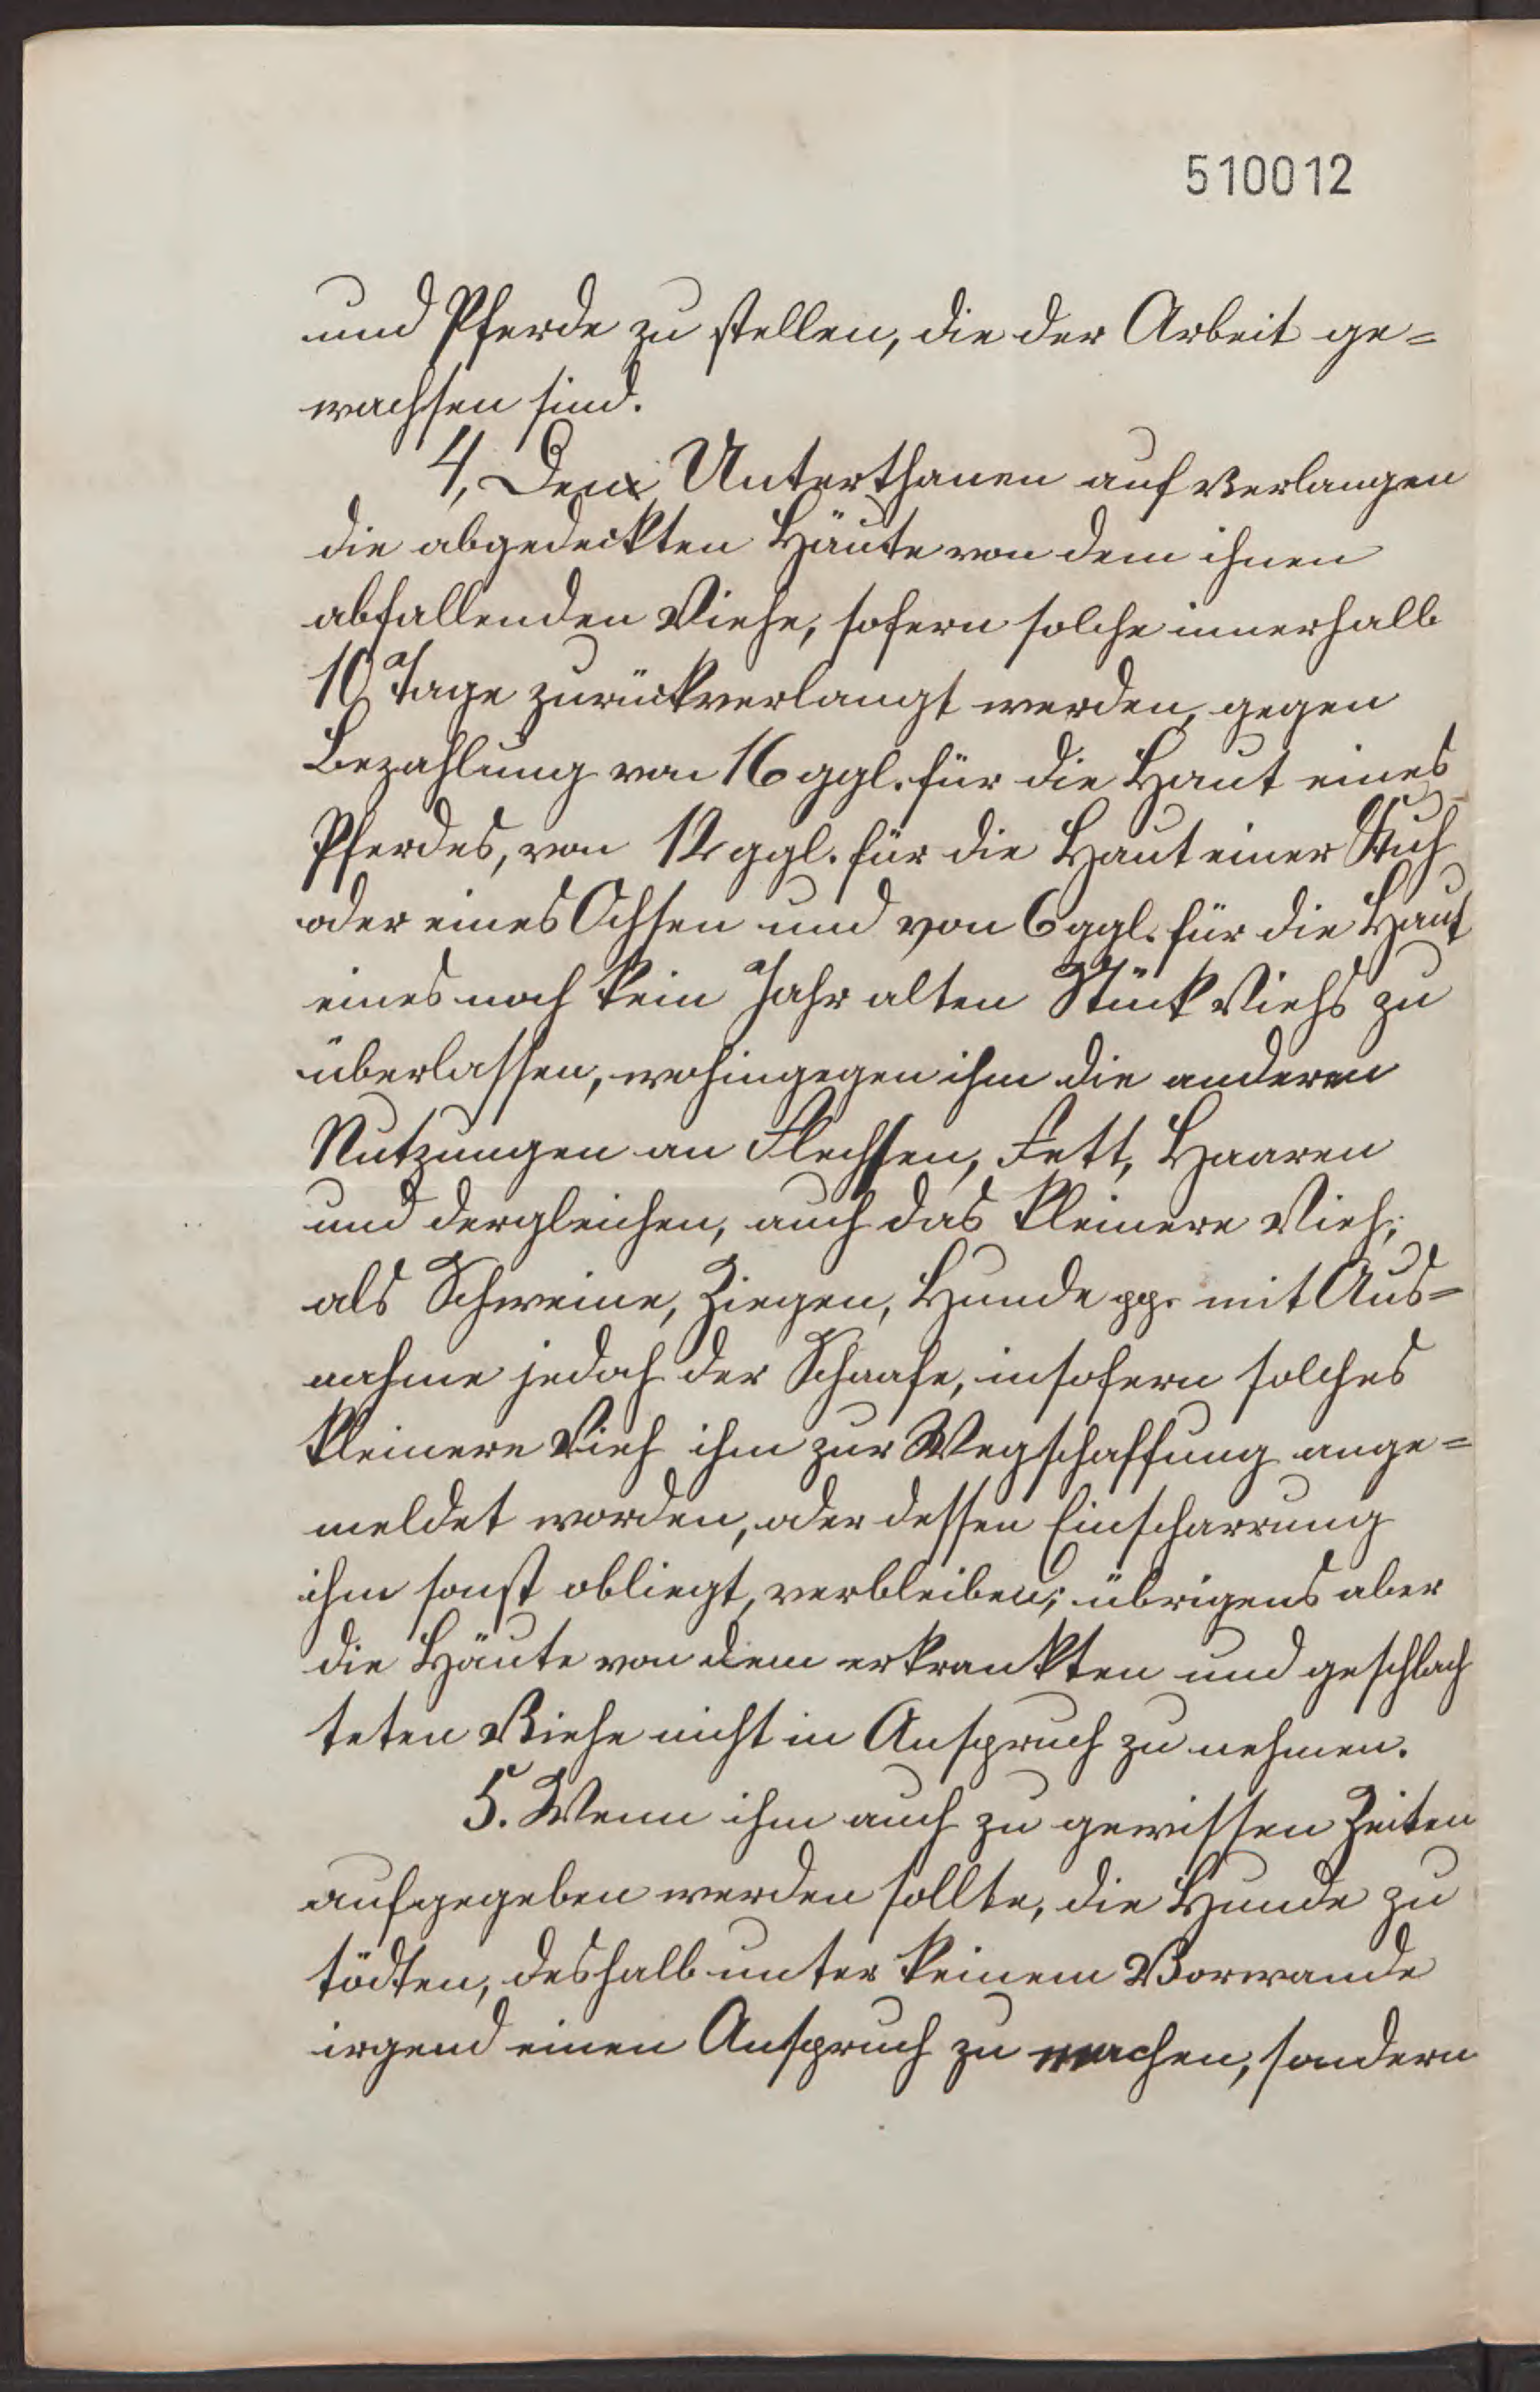 510012
und Pferde zu stellen, die der Arbeit ge=
wachsen sind.
4, Den Unterthanen auf Verlangen
die abgedeckten Häute von dem ihnen
abfallenden Viehe, sofern solche innerhalb
10 Tage zurückverlangt werden, gegen
Bezahlung von 16 ggl. für die Haut eines
Pferdes, von 12 ggl. für die Haut einer Kuh
oder eines Ochsen und von 6 ggl. für die Haut
eines noch kein Jahr alten Stück Viehs zu
überlassen, wohingegen ihm die anderen
Nutzungen an Flechsen, Fett, Haaren
und dergleichen, auch das kleinere Vieh,
als Schweine, Ziegen, Hunde pp. mit Aus=
nahme jedoch der Schaafe, insofern solches
kleinere Vieh ihm zur Wegschaffung ange=
meldet worden, oder dessen Einscharrung
ihm sonst obliegt, verbleiben; übrigens aber
die Häute von dem erkrankten und geschlach
teten Viehe nicht in Anspruch zu nehmen.
5. Wenn ihm auch zu gewissen Zeiten
aufgegeben werden sollte, die Hunde zu
tödten, deshalb unter keinem Vorwande
irgend einen Anspruch zu machen, sondern